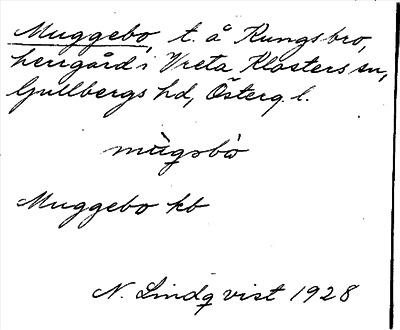 Muggebo, t. å Kungsbro,
herrgård i Vreta Klosters sn,
Gullbergs hd, Österg. l.
mùgsbò
Muggebo kb
N. Lindqvist 1928